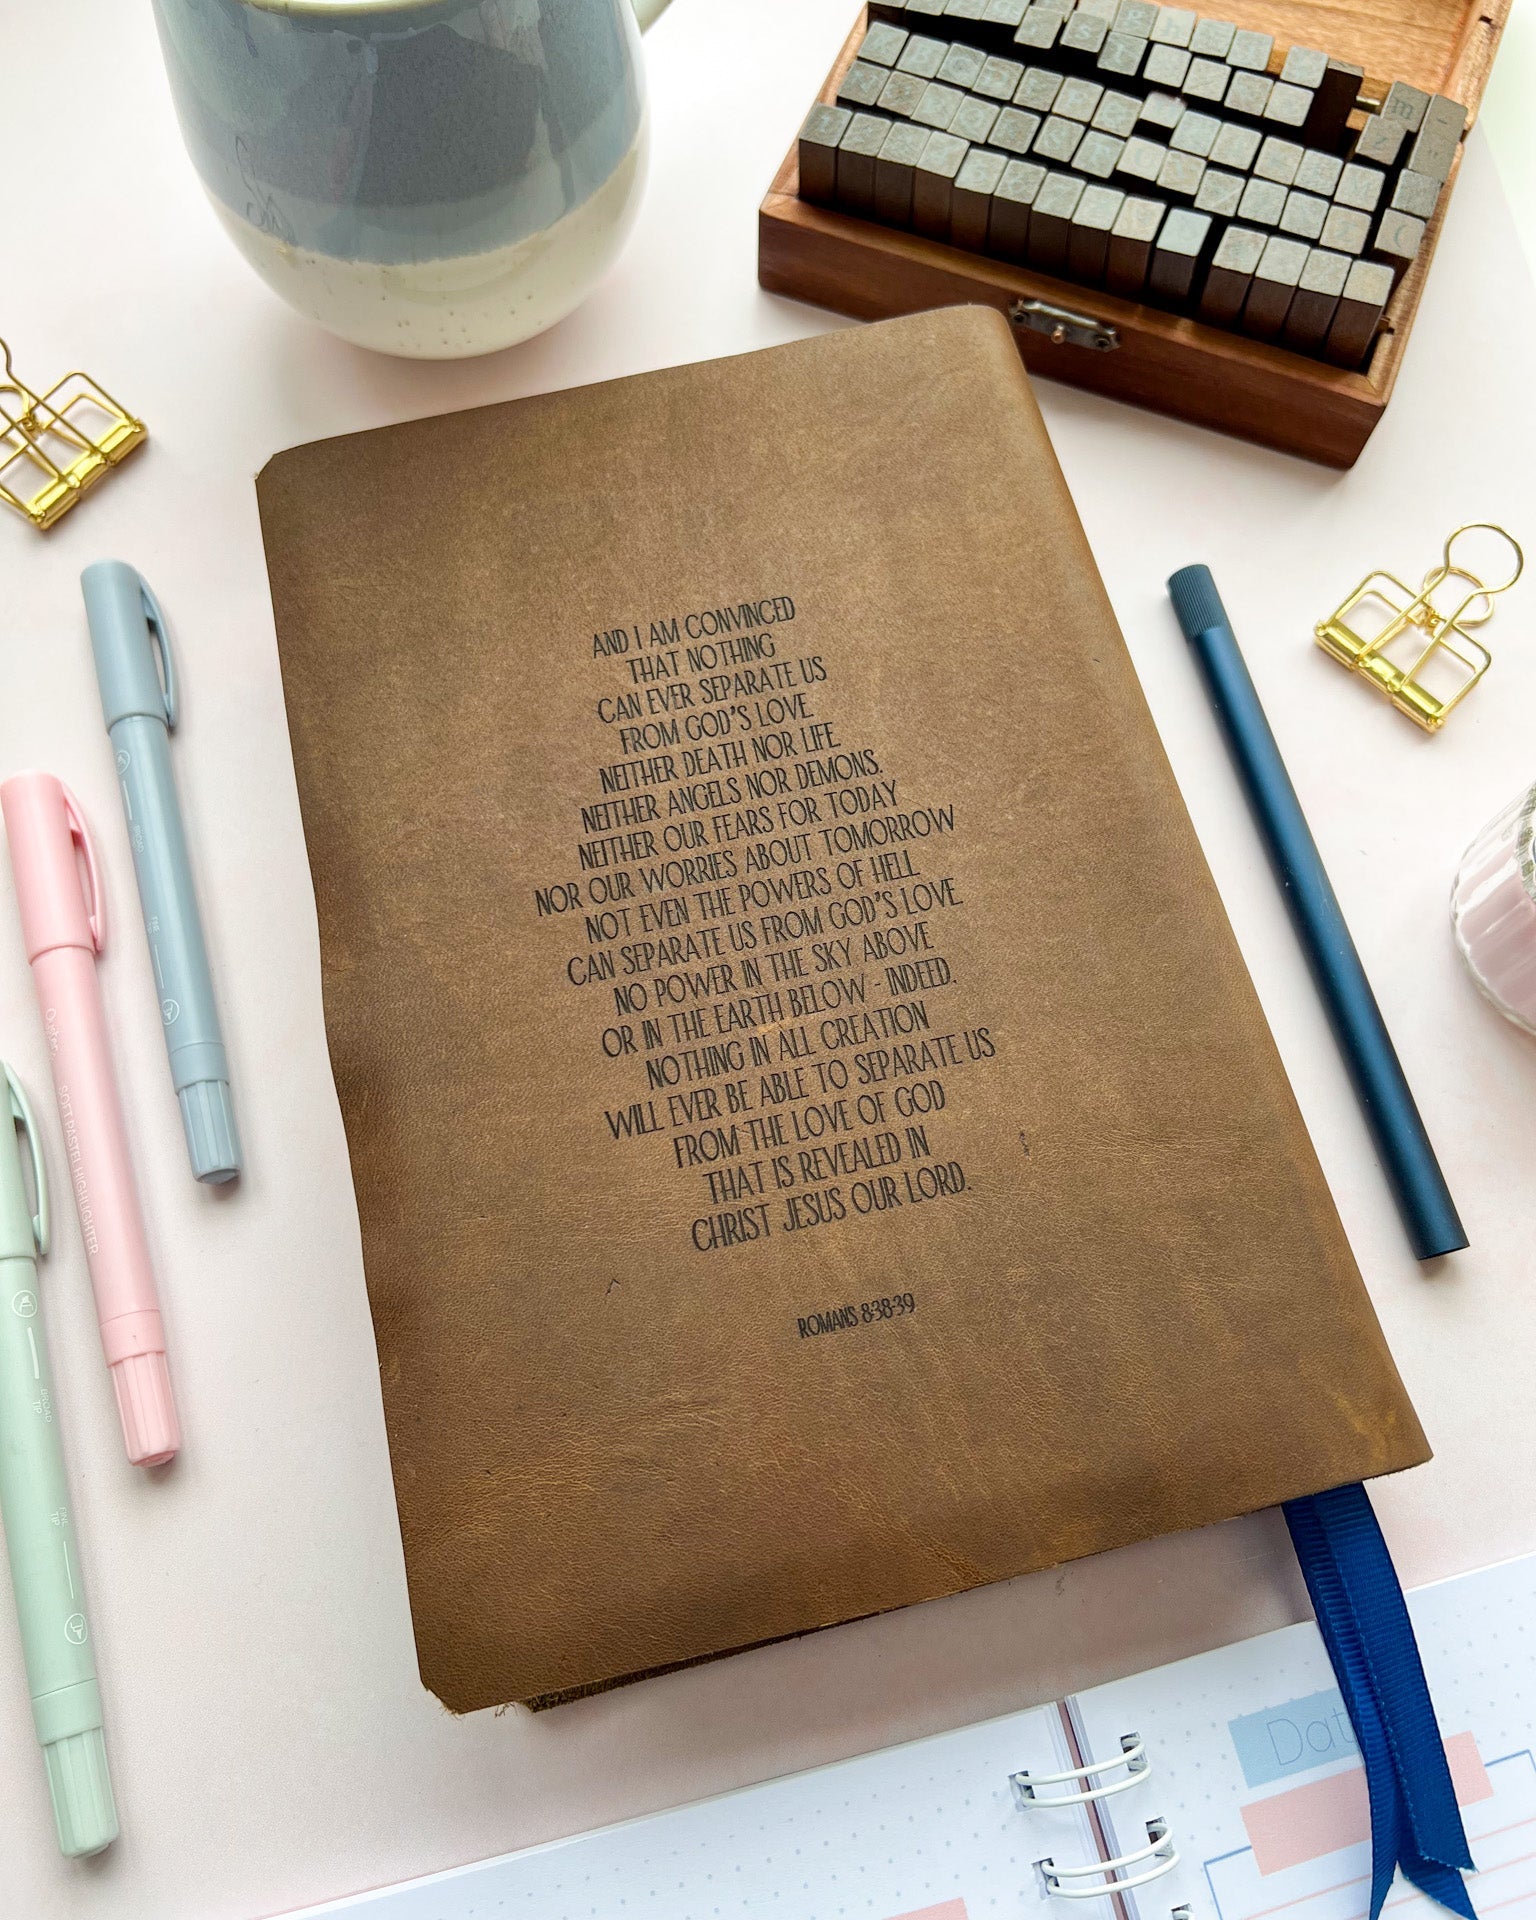 AND I AM CONVINCED
THAT NOTHING
CAN EVER SEPARATE US
FROM GOD'S LOVE.
NEITHER DEATH NOR LIFE,
NEITHER ANGELS NOR DEMONS,
NEITHER OUR FEARS FOR TODAY
NOR OUR WORRIES ABOUT TOMORROW
NOT EVEN THE POWERS OF HELL
CAN SEPARATE US FROM GOD'S LOVE.
NO POWER IN THE SKY ABOVE
OR IN THE EARTH BELOW - INDEED,
NOTHING IN ALL CREATION
WILL EVER BE ABLE TO SEPARATE US
FROM THE LOVE OF GOD
THAT IS REVEALED IN
CHRIST JESUS OUR LORD.
ROMANS 8:38-39
BROAD
TIP
FINE
TIP
Oyster
SOFT PASTEL HIGHLIGHTER
BROAD
TIP
FINE
TIP
Dat